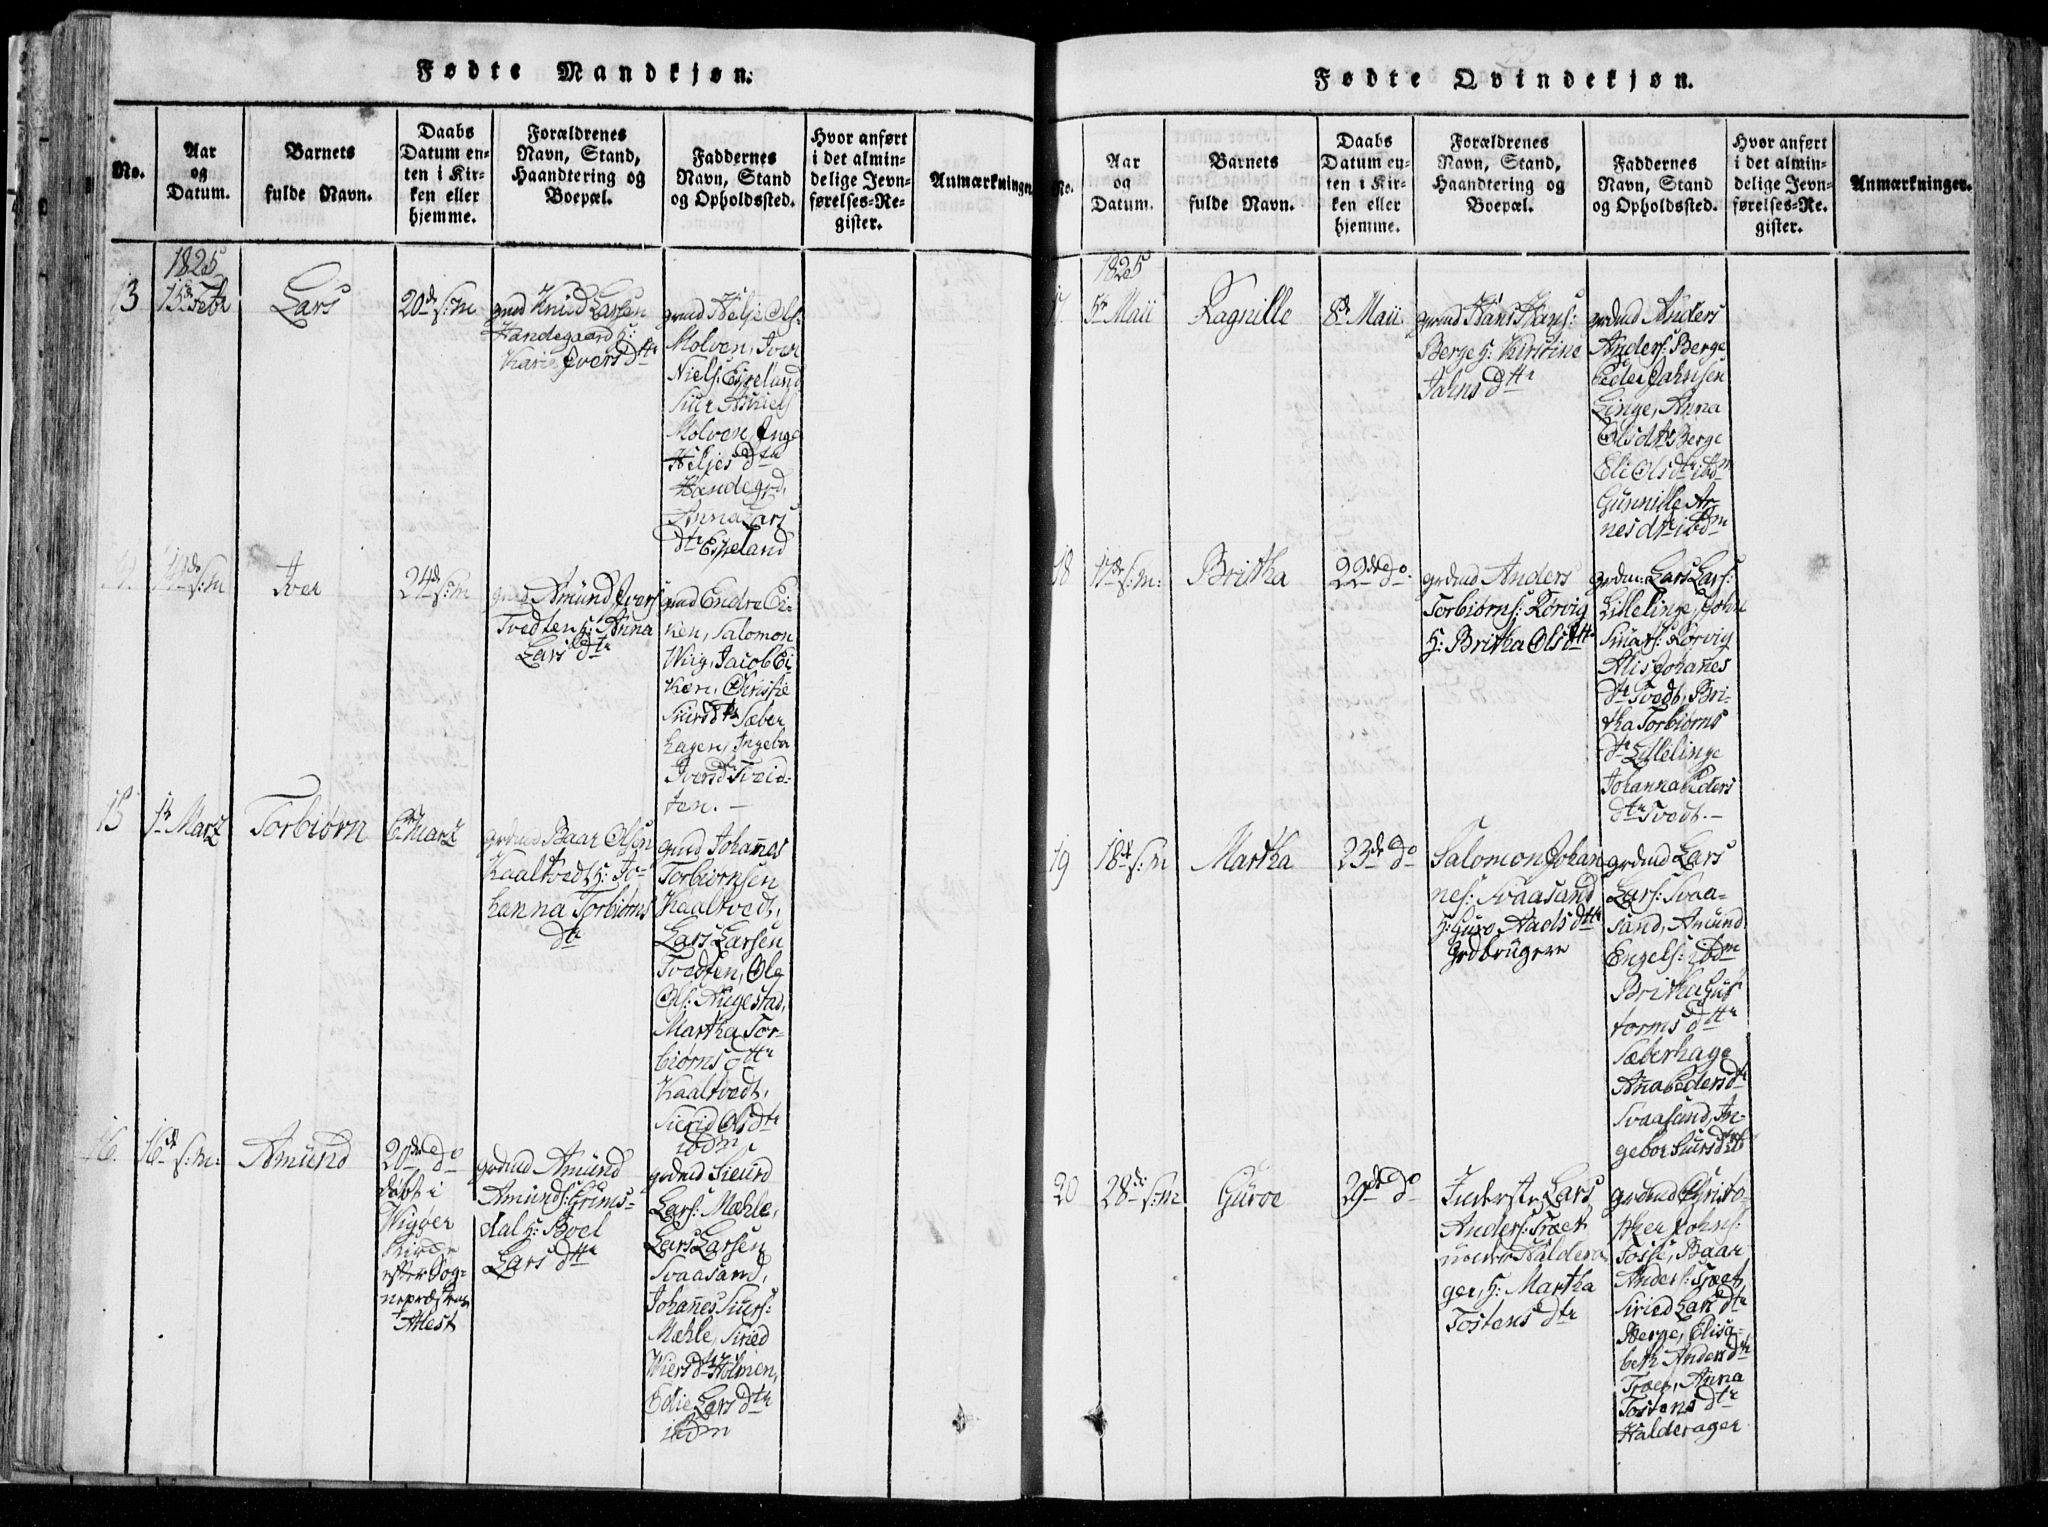 Fødte Mandkjøn.
No.
Aar
og
Datum.
Barnets
fulde Navn.
Daabs
Datum en-
ten i Kir-
ken eller
hjemme.
Forældrenes
Navn, Stand,
Haandtering og
Boepæl.
Faddernes
Navn, Stand
og Opholdssted.
Hvor anført
i det almin-
delige Jevn-
førelses-Re-
gister.
Anmærkninger.
1825
13
15de Febr
Lars
20de s:m
grmd Knud Larsen
Handegaard h:
Karie Ivers dtr
grmd Helje Ols:
Molven, Iver
Niels: Espeland
Siur Amiels
Molven, Inge
Heljes dtr
Handegrd,
Anna Lars
dtr Espeland
14.
14de s:m
Iver
24de s:m
grmd Amund Ivers
Tvedten h: Anna
Lars dtr
grmd Endre Ei-
ken, Salomon
Wiig, Jacob Ei-
ken, Christie
Siurs dtr Sæber
hagen, Ingebor
Ivers dtr Tveid-
ten. -
15
1ste Martz
Torbiørn
6te Martz
grdmd Baar Olsen
Kaaltvedt h: Jo-
hanna Torbiørns
dtr
grmd Johannes
Torbiørnsen
Kaaltvedt,
Lars Larsen
Tvedten, Ole
Ols: Augestad,
Martha Tor-
biørns dtr
Kaaltvedt,
Sierid Ols dtr
ibdm
16.
16de s:m:
Amund
20de do
døbt i
Wigøer
Kirke
efter Sog-
nepræstens
Attest
grdmd Amund
Amunds: Grims-
dal h: Boel
Lars dtr
grdmd Sieurd
Lars: Mæhle,
Lars Larsen
Svaasand,
Johannes Siurs:
Mæhle, Siried
Wiers dtr Holmen,
Edie Lars dtr
ibdm
Fødte Qvindekjøn.
No.
Aar
og
Datum.
Barnets
fulde Navn.
Daabs
Datum en-
ten i Kir-
ken eller
hjemme.
Forældrenes
Navn, Stand,
Haandtering og
Boepæl.
Faddernes
Navn, Stand
og Opholdssted.
Hvor anført
i det almin-
delige Jevn-
førelses-Re-
gister.
Anmærkninger.
1825
17.
5te Maii
Ragnille
8de Maii
grdmd Hans Hans:
Berge h: Kirstine
Jahns dtr
grdmd Anders
Anders: Berge
Peder Jahnsen
Linge, Anna
Olsdtr Berge
Eli Olsdtr ibdm
Gunnille Ar
nes dtr ibdm
18
17de s:m:
Britha
22de do.
grdmd Anders
Torbiørns: Rørvig
h: Britha Ols dtr
grdm: Lars Lars:
Lillelinge, John
Smats: Rørvig
Alis Johannes
dtr Tvedt, Bri-
tha Torbiørns
dtr Lillelinge
Johanna Peders
dtr Tvedt. -
19
18de s:m
Martha
23de do
Salomon Johan
nes: Svaasand
h: Guro Aads dtr
Grdbrugere
grdmd Lars
Lars: Svaa-
sand, Amund
Engels: ibdm
Britha Gut
torms dtr
Sæberhage
Anna Peders dtr
Svaasand, In-
gebor Siurs dtr ib
20
28de s:m
Guroe
29de do
Inderste Lars
Anders: Træet
under Haldera
ger, h: Martha
Tostens dtr
grdmd Christo-
pher Johns:
Tosse, Baar
Anders: Træet,
Siried Lars dtr
Berge, Elisa-
beth Anders dtr
Træet, Anna
Tostens dtr
Halderager